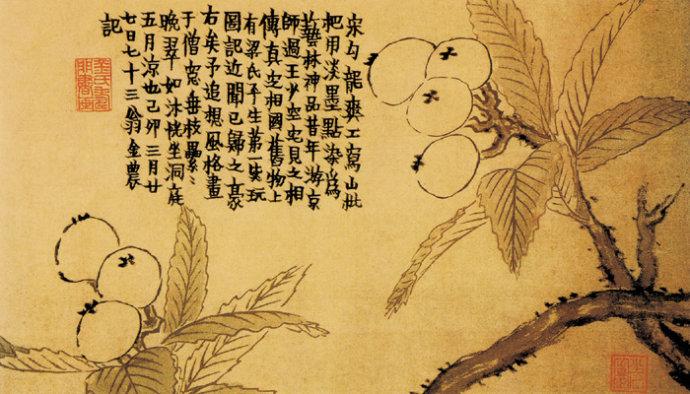 宋勾龍爽工寫山枇
杷用淡墨點染爲
藝林神品昔年游京
師過王少空宅見之相
傳真定相國舊物上
有梁氏平生第一柒玩
圖記近聞已歸之豪
右矣予追想風格畫
于僧窗垂枝纍纍
晚翠如沐恍坐洞庭
五月涼也己卯三月廿
七日七十三翁金農
記